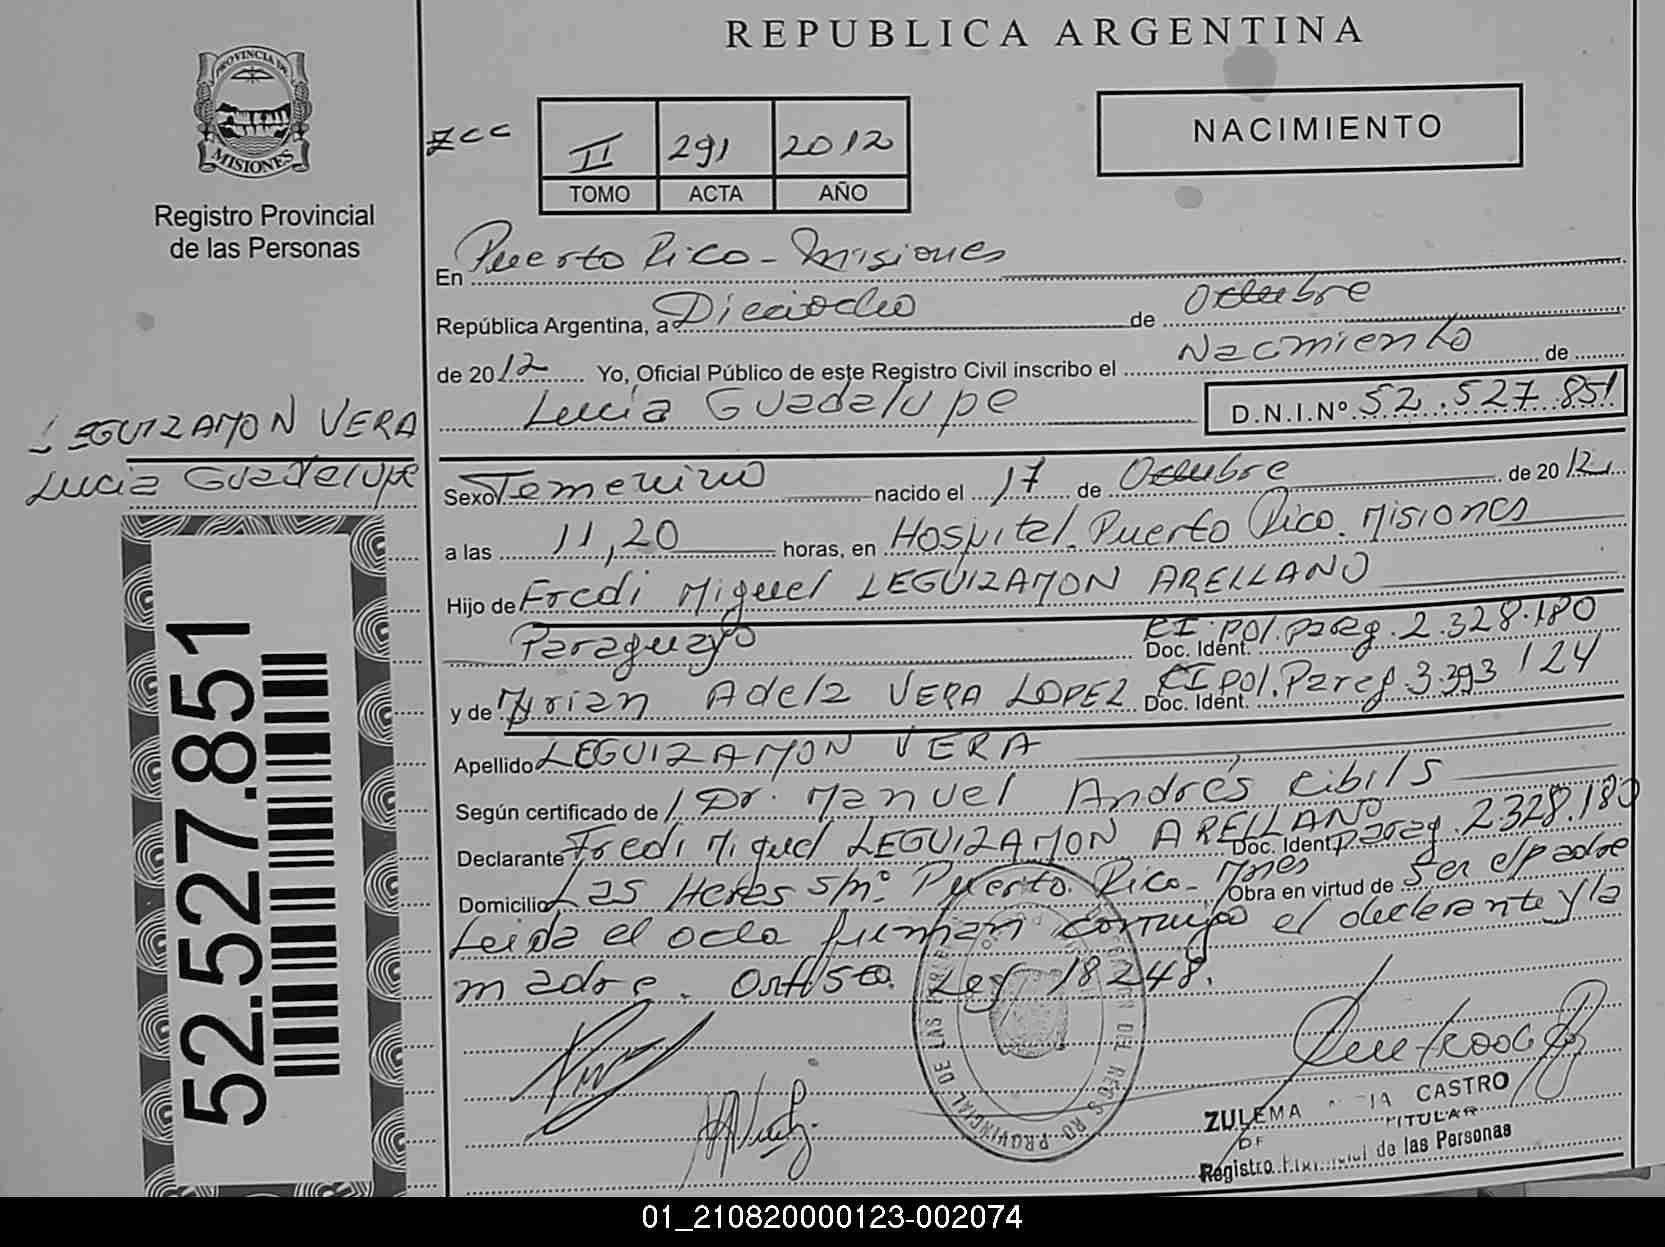 REPUBLICA ARGENTINA
PROVINCIA DE
MISIONES
Registro Provincial
de las Personas
ZCC
II 291 2012
TOMO ACTA AÑO
NACIMIENTO
En Puerto Rico - Misiones
República Argentina, a Dieciocho de Octubre
de 2012 Yo, Oficial Público de este Registro Civil inscribo el Nacimiento de
Lucía Guadalupe D.N.I.Nº 52.527.851
LEGUIZAMON VERA
Lucia Guadalupe
52.527.851
Sexo Femenino nacido el 17 de Octubre de 2012
a las 11,20 horas, en Hospital Puerto Rico. Misiones
Hijo de Fredi Miguel LEGUIZAMON ARELLANO
Paraguayo Doc. Ident. CI pol. parag. 2.328.180
y de Mirian Adela VERA LOPEZ Doc. Ident. CI pol. Parag. 3.393.124
Apellido LEGUIZAMON VERA
Según certificado de Dr. Manuel Andrés Cibils
Declarante Fredi Miguel LEGUIZAMON ARELLANO Doc. Ident. parag. 2328.180
Domicilio Las Heras s/nº Puerto Rico - Mnes Obra en virtud de ser el padre
Leida el acta firman conmigo el declarante y la
madre. Ley 18248.
ZULEMA CASTRO
TITULAR
Registro de las Personas
01_210820000123-002074